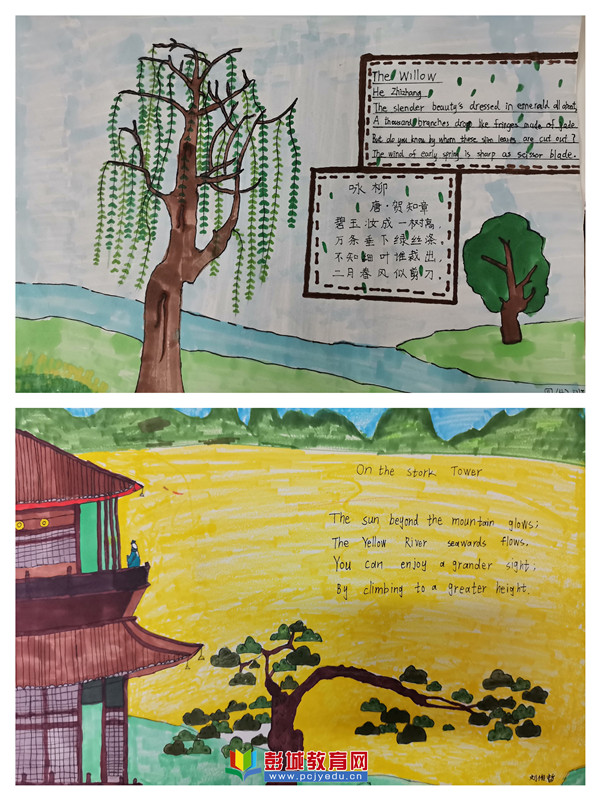 The Willow
He Zhizhang
The slender beauty's dressed in emerald all about,
A thousand branches droop like fringes made of jade.
But do you know by whom these slim leaves are cut out ?
The wind of early spring is sharp as scissor blade.
咏柳
唐·贺知章
碧玉妆成一树高,
万条垂下绿丝绦.
不知细叶谁裁出,
二月春风似剪刀.
On the stork Tower
The sun beyond the mountain glows;
The Yellow River seawards flows.
You can enjoy a grander sight;
By climbing to a greater height.
彭城教育网
www.pcjyedu.cn